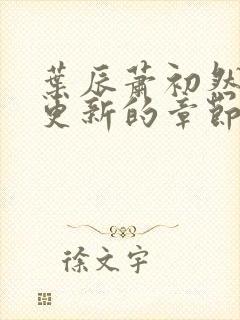 葉辰蕭初然
更新的章節
徐文宇